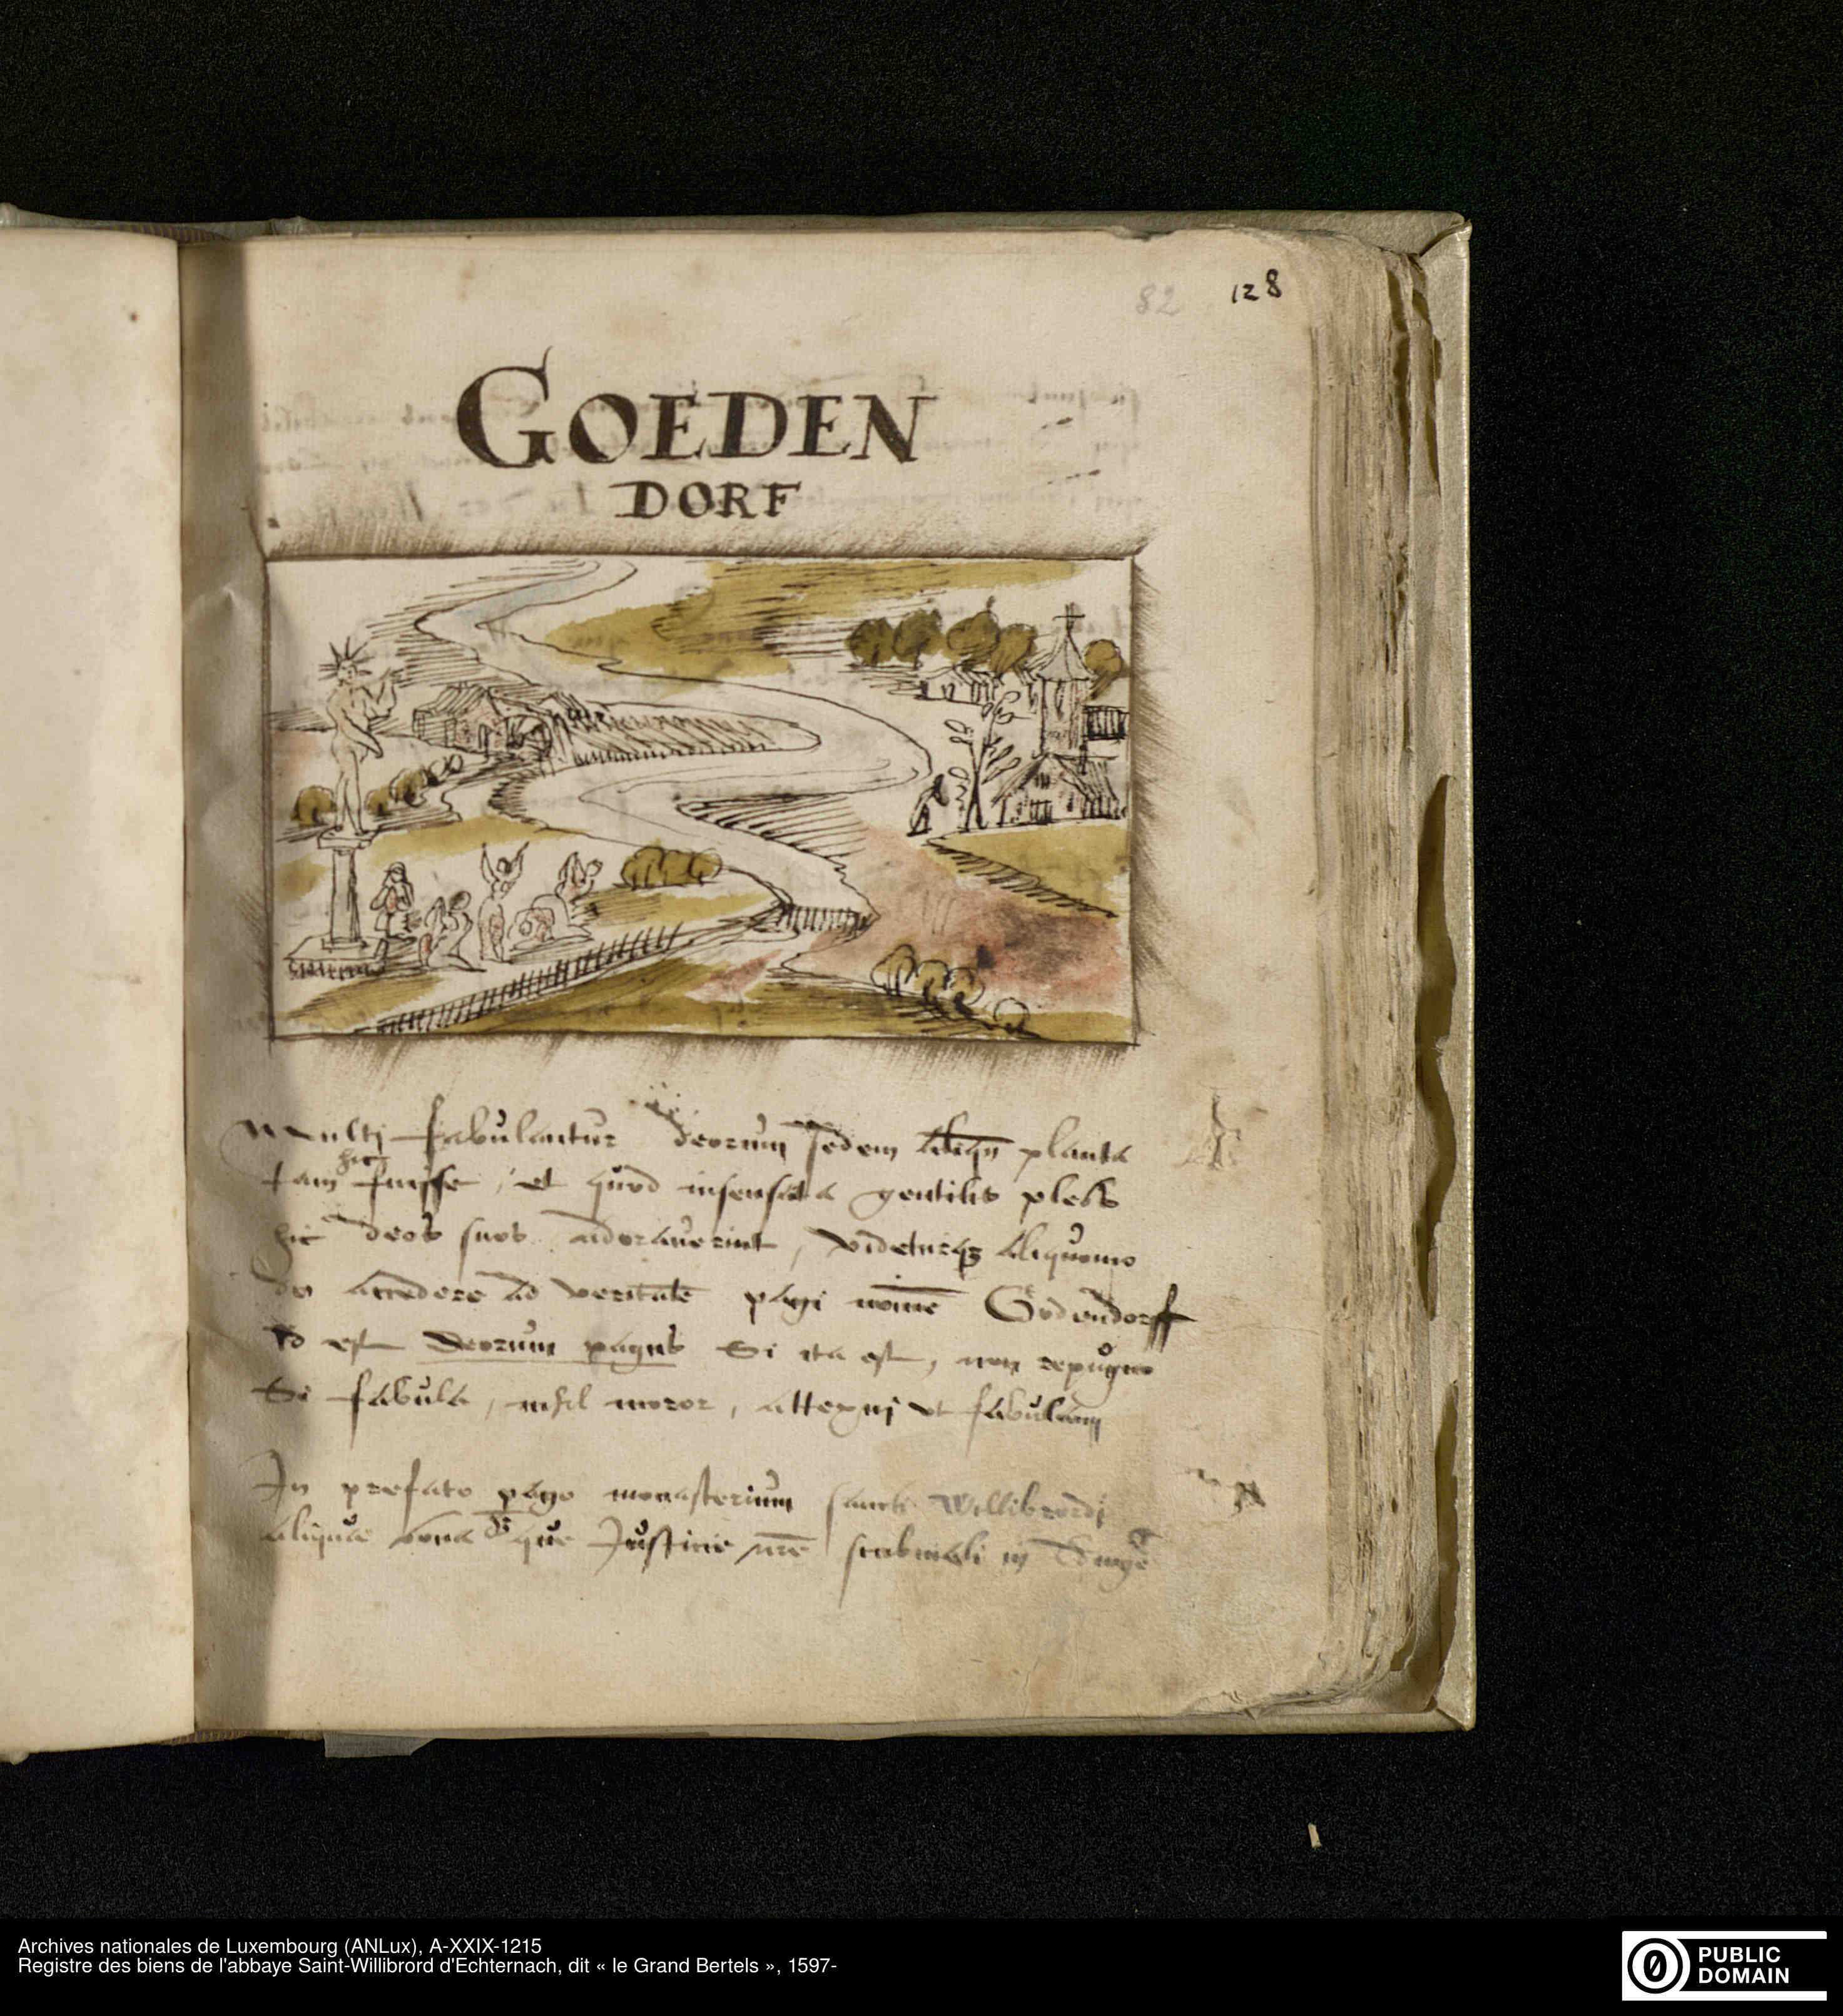 82 128
GOEDEN
DORF
Multi fabulantur deorum sedem aliqn planta
tam hic fuisse, et quod insensata gentilis plebs
hic deos suos adoraverint, videturq aliquomo
do accedere ad veritate pagi nome Gödendorff
id est Deorum pagus Si ita est, non repugno
Si fabula, nihil moror, attexui et fabulam
In prefato pago monasterium sancti Willibrordi
aliqua bona que Justicie nre scabinali in
Archives nationales de Luxembourg (ANLux), A-XXIX-1215
Registre des biens de l'abbaye Saint-Willibrord d'Echternach, dit « le Grand Bertels », 1597-
PUBLIC
DOMAIN